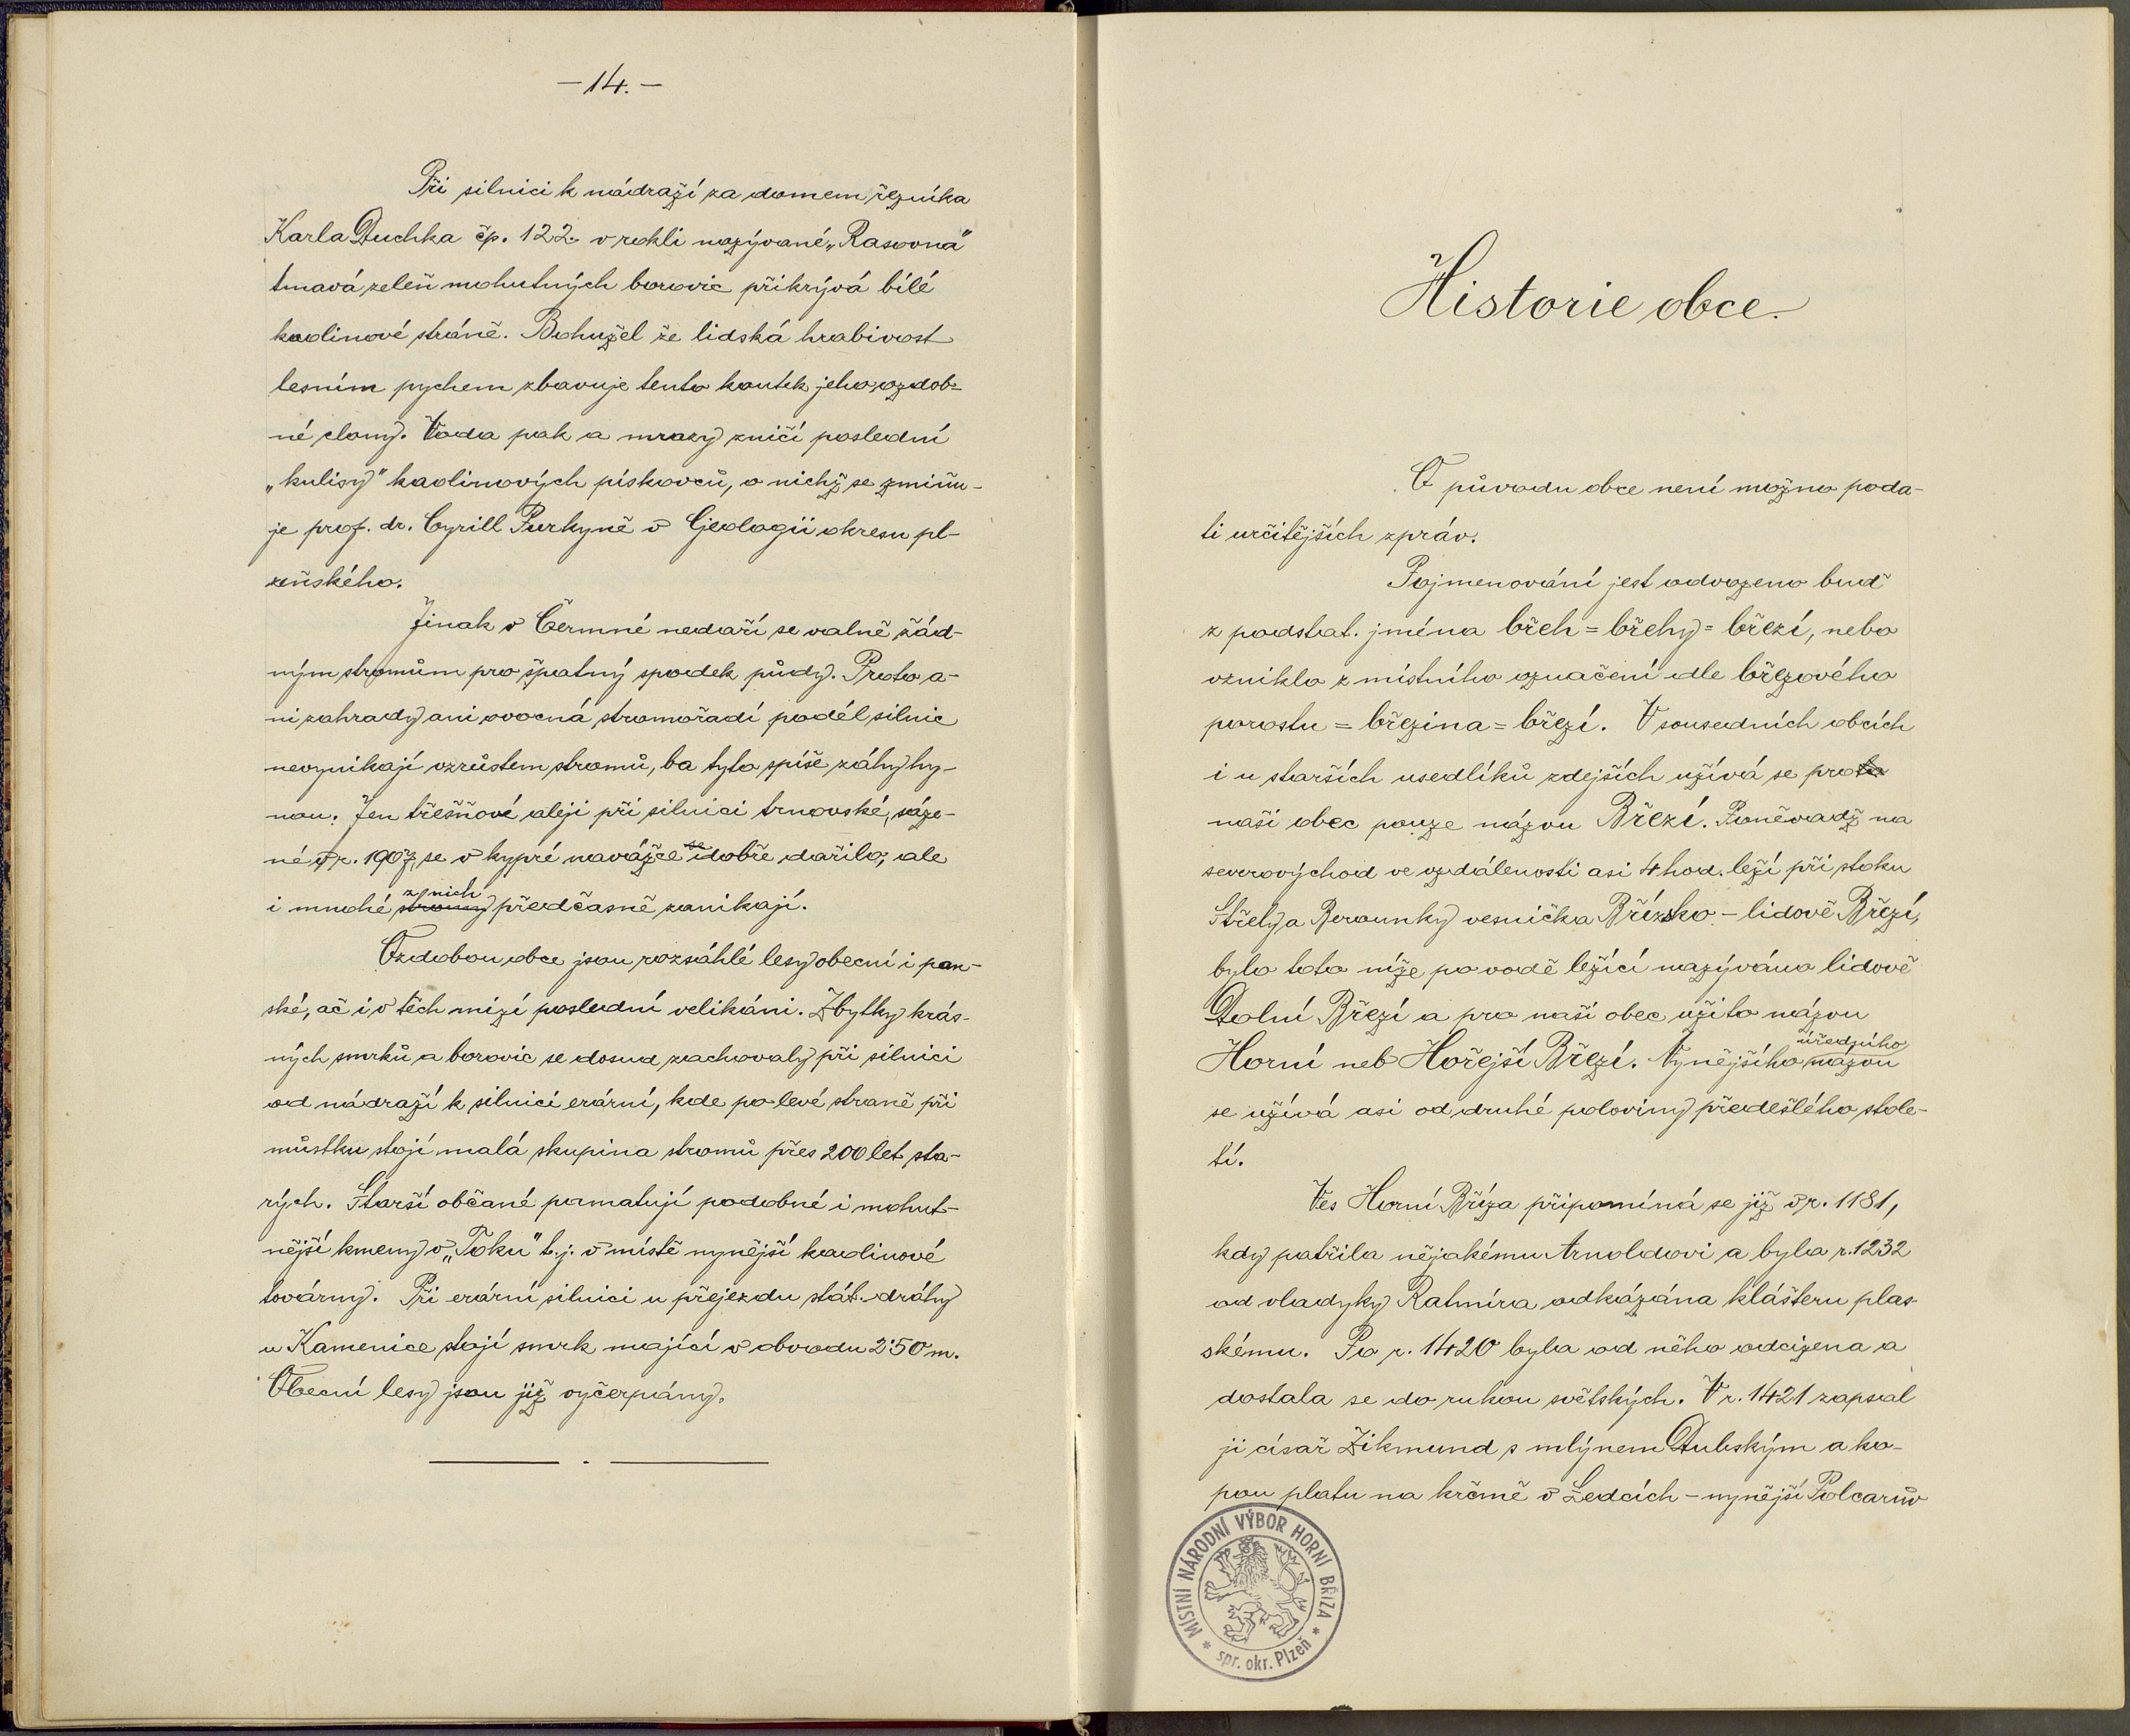 – 14. –
Při silnici k nádraží za domem řezníka
Karla Duchka čp. 122. v rokli nazývané „Rasovna"
tmavá zeleň mohutných borovic přikrývá bílé
kaolinové stráně. Bohužel že lidská hrabivost
lesním pychem zbavuje tento koutek jeho ozdob-
né clony. Voda pak a mrazy zničí poslední
„kulisy" kaolinových pískovců, o nichž se zmiňu-
je prof. dr. Cyrill Purkyně v Geologii okresu pl-
zeňského.
Jinak v Čermné nedaří se valně žád-
ným stromům pro špatný spodek půdy. Proto a-
ni zahrady ani ovocná stromořadí podél silnic
nevynikají vzrůstem stromů, ba tyto spíše záhy hy-
nou. Jen třešňové aleji při silnici trnovské, sáze-
né v r. 1907, se v kypré navážce se dobře dařilo, ale
i mnohé stromy z nich předčasně zanikají.
Ozdobou obce jsou rozsáhlé lesy obecní i pan-
ské, ač i v těch mizí poslední velikáni. Zbytky krás-
ných smrků a borovic se dosud zachovaly při silnici
od nádraží k silnici erární, kde po levé straně při
můstku stojí malá skupina stromů přes 200 let sta-
rých. Starší občané pamatují podobné i mohut-
nější kmeny v „Toku" t. j. v místě nynější kaolinové
továrny. Při erární silnici u přejezdu stát. dráhy
u Kamenice stojí smrk mající v obvodu 2·50 m.
Obecní lesy jsou již vyčerpány.
Historie obce.
O původu obce není možno poda-
ti určitějších zpráv.
Pojmenování jest odvozeno buď
z podstat. jména břeh = břehy = březí, nebo
vzniklo z místního označení dle březového
porostu = březina = březí. V sousedních obcích
i u starších usedlíků zdejších užívá se proto
naši obec pouze názvu Březí. Poněvadž na
severovýchod ve vzdálenosti asi 4 hod. leží při stoku
Střely a Berounky vesnička Břízsko – lidově Březí,
bylo toto níže po vodě ležící nazýváno lidově
Dolní Březí a pro naši obec užito názvu
Horní neb Hořejší Březí. Nynějšího úředního názvu
se užívá asi od druhé poloviny předešlého stole-
tí.
Ves Horní Bříza připomíná se již v r. 1181,
kdy patřila nějakému Arnoldovi a byla r. 1232
od vladyky Ratmíra odkázána klášteru plas-
skému. Po r. 1420 byla od něho odcizena a
dostala se do rukou světských. V r. 1421 zapsal
ji císař Zikmund s mlýnem Dubským a ko-
pou platu na krčmě v Ledcích – nynější Polcarův
MÍSTNÍ NÁRODNÍ VÝBOR HORNÍ BŘÍZA
* spr. okr. Plzeň *